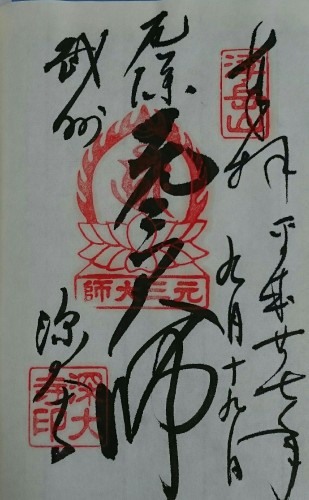 奉拝
浮岳山
平成廿七年
九月十九日
厄除
元三大師
元三大師
武州
深大寺
深大寺印